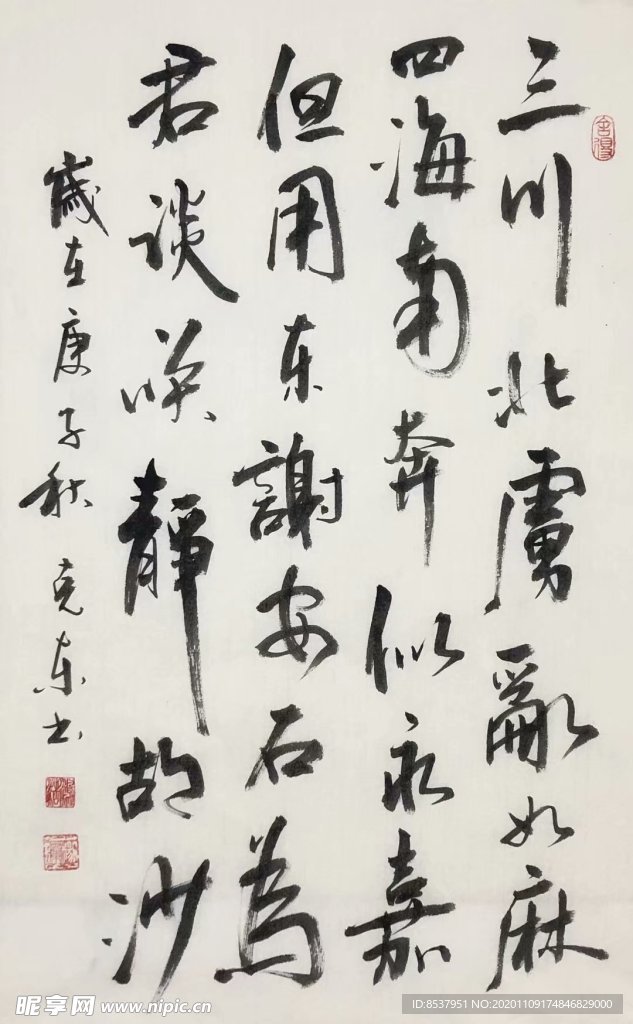 三川北虜亂如麻
四海南奔似永嘉
但用东謝安石為
君談咲靜胡沙
歲在庚子秋 克东书
舍得
昵享网 www.nipic.cn
ID:8537951 NO:20201109174846829000